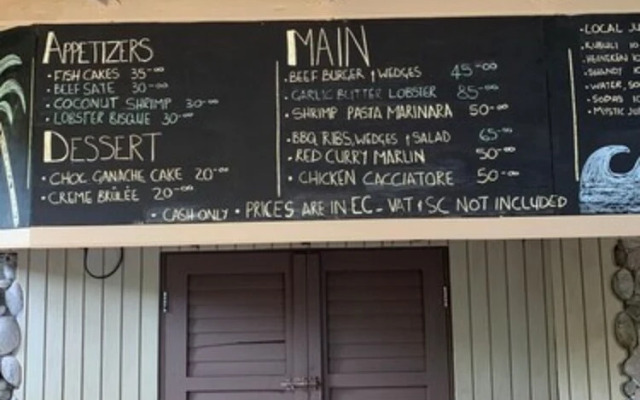 APPETIZERS
• FISH CAKES 35-00
• BEEF SATE 30-00
• COCONUT SHRIMP 30-00
• LOBSTER BISQUE 30-00
DESSERT
• CHOC GANACHE CAKE 20-00
• CREME BRÛLÉE 20-00
MAIN
• BEEF BURGER + WEDGES 45-00
• GARLIC BUTTER LOBSTER 85-00
• SHRIMP PASTA MARINARA 50-00
• BBQ RIBS, WEDGES + SALAD 65-00
• RED CURRY MARLIN 50-00
• CHICKEN CACCIATORE 50-00
• CASH ONLY • PRICES ARE IN EC - VAT + SC NOT INCLUDED
• LOCAL
• KUBULI
• HEINEKEN
• SHANDY
• WATER,
• SODAS
• MYSTIC